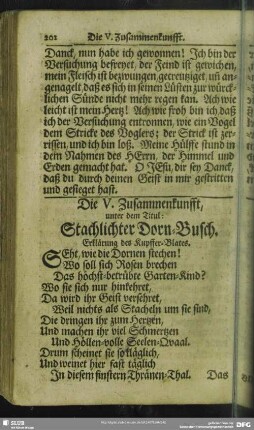 202 Die V. Zusammenkunfft.
Danck, nun habe ich gewonnen! Ich bin der
Versuchung befreyet, der Feind ist gewichen,
mein Fleisch ist bezwungen, gecreutziget, uñ an-
genagelt, daß es sich in seinen Lüsten zur würck-
lichen Sünde nicht mehr regen kan. Ach wie
leicht ist mein Hertz! Ach wie froh bin ich, daß
ich der Versuchung entronnen, wie ein Vogel
dem Stricke des Voglers; der Strick ist zer-
rissen, und ich bin loß. Meine Hülffe stund in
dem Nahmen des HErrn, der Himmel und
Erden gemacht hat. O JEsu, dir sey Danck,
daß du durch deinen Geist in mir gestritten
und gesieget hast.
Die V. Zusammenkunfft,
unter dem Titul:
Stachlichter Dorn-Busch.
Erklärung des Kupffer-Blates.
SEht, wie die Dornen stechen!
Wo soll sich Rosen brechen
Das höchst-betrübte Garten-Kind?
Wo sie sich nur hinkehret,
Da wird ihr Geist versehret,
Weil nichts als Stacheln um sie sind,
Die dringen ihr zum Hertzen,
Und machen ihr viel Schmertzen
Und Höllen-volle Seelen-Qvaal.
Drum scheinet sie so kläglich,
Und weinet hier fast täglich
In diesem finstern Thränen-Thal.
Das